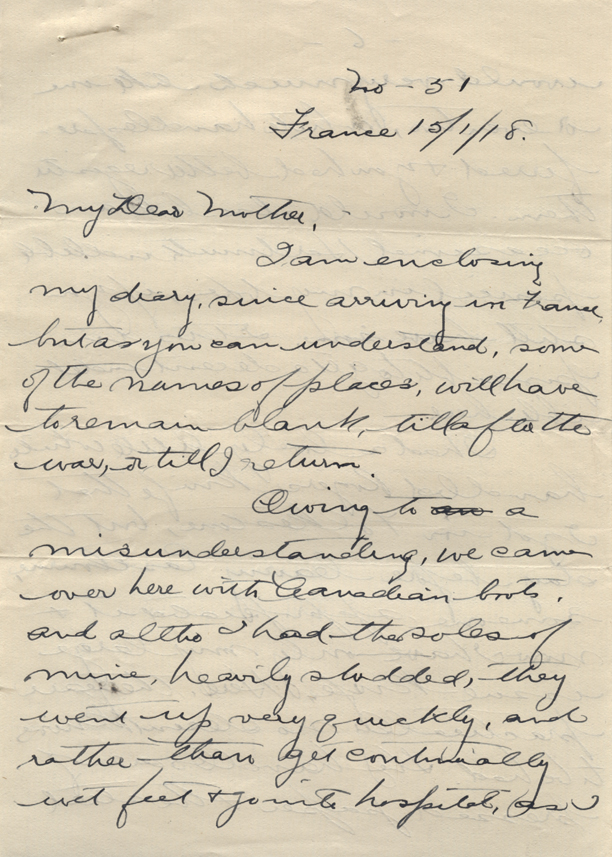 No - 51
France 15/1/18.
My Dear Mother, -
I am enclosing
my diary, since arriving in France,
but as you can understand, some
of the names of places, will have
to remain blank, till after the
war, or till I return.
Owing to an a
misunderstanding, we came
over here with Canadian boots,
and altho I had the soles of
mine, heavily studded, they
went up very quickly, and
rather than get continually
wet feet & go into hospital, as I